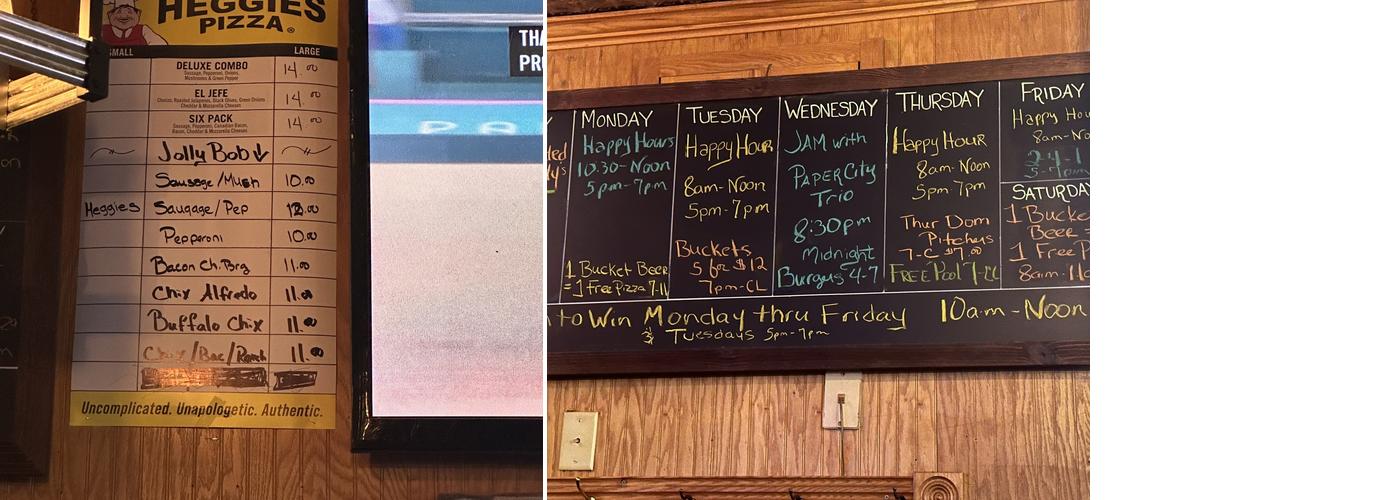 HEGGIES
PIZZA
SMALL LARGE
DELUXE COMBO 14.00
Sausage, Pepperoni, Onions,
Mushrooms & Green Pepper
EL JEFE 14.00
Chorizo, Roasted Jalapenos, Black Olives, Green Onions
Cheddar & Mozzarella Cheeses
SIX PACK 14.00
Sausage, Pepperoni, Canadian Bacon,
Bacon, Cheddar & Mozzarella Cheeses
Jolly Bob ↓
Sausage/Mush 10.00
Heggies Saugage/Pep 12.00
Pepperoni 10.00
Bacon Ch. Brg 11.00
Chix Alfredo 11.00
Buffalo Chix 11.00
Chix/Bac/Ranch 11.00
Uncomplicated. Unapologetic. Authentic.
THA
PRO
PA
MONDAY
Happy Hours
10:30-Noon
5pm-7pm
1 Bucket Beer
=1 Free Pizza 7-11
TUESDAY
Happy Hour
8am-Noon
5pm-7pm
Buckets
5 for $12
7pm-CL
WEDNESDAY
JAM with
PAPER City
Trio
8:30pm
Midnight
Burgers 4-7
THURSDAY
Happy Hour
8am-Noon
5pm-7pm
Thur Dom
Pitchers
7-C $7.00
FREE Pool 7-CL
FRIDAY
Happy Hou
8am-No
2-4-1
5-7pm
SATURDAY
1 Bucke
Beer =
1 Free P
8am-11a
to Win Monday thru Friday 10am-Noon
& Tuesdays 5pm-7pm